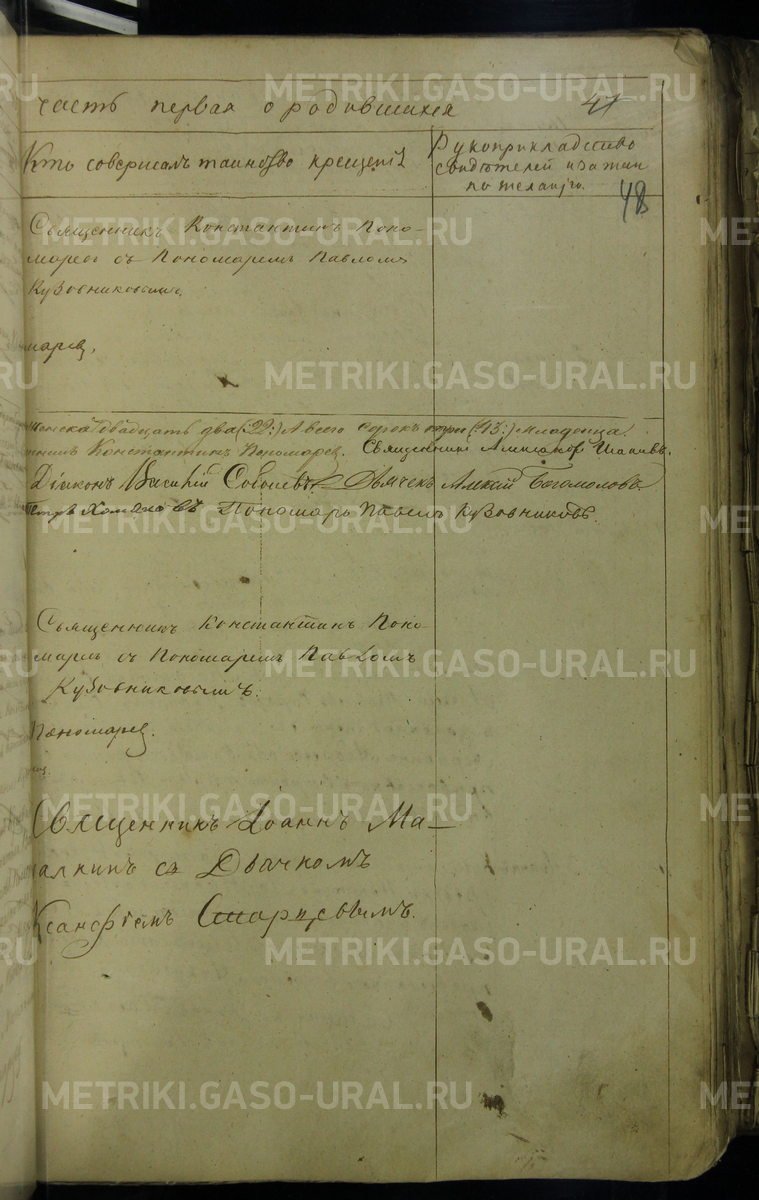 METRIKI.GASO-URAL.RU
часть первая о родившихся 47
Кто совершалъ таинство крещенiя
Рукоприкладство
свидѣтелей записи
по желанiю.
48
Священникъ Константинъ Поно-
маревъ съ Пономаремъ Павломъ
Кузовниковымъ.
марев.
женска двадцать два (:22:) А всего сорокъ три (:43:) младенца
Константинъ Пономарев. Священникъ Александръ
Дiаконъ Василiй Дьячекъ Алексiй Богомоловъ.
Петръ Хомяковъ Пономарь Павелъ Кузовниковъ.
Священникъ Константинъ Поно-
марев съ Пономаремъ Павломъ
Кузовниковымъ.
Пономарев.
Священникъ Iоаннъ Ма-
съ Дьячкомъ
Ксанфiемъ Старцевымъ.